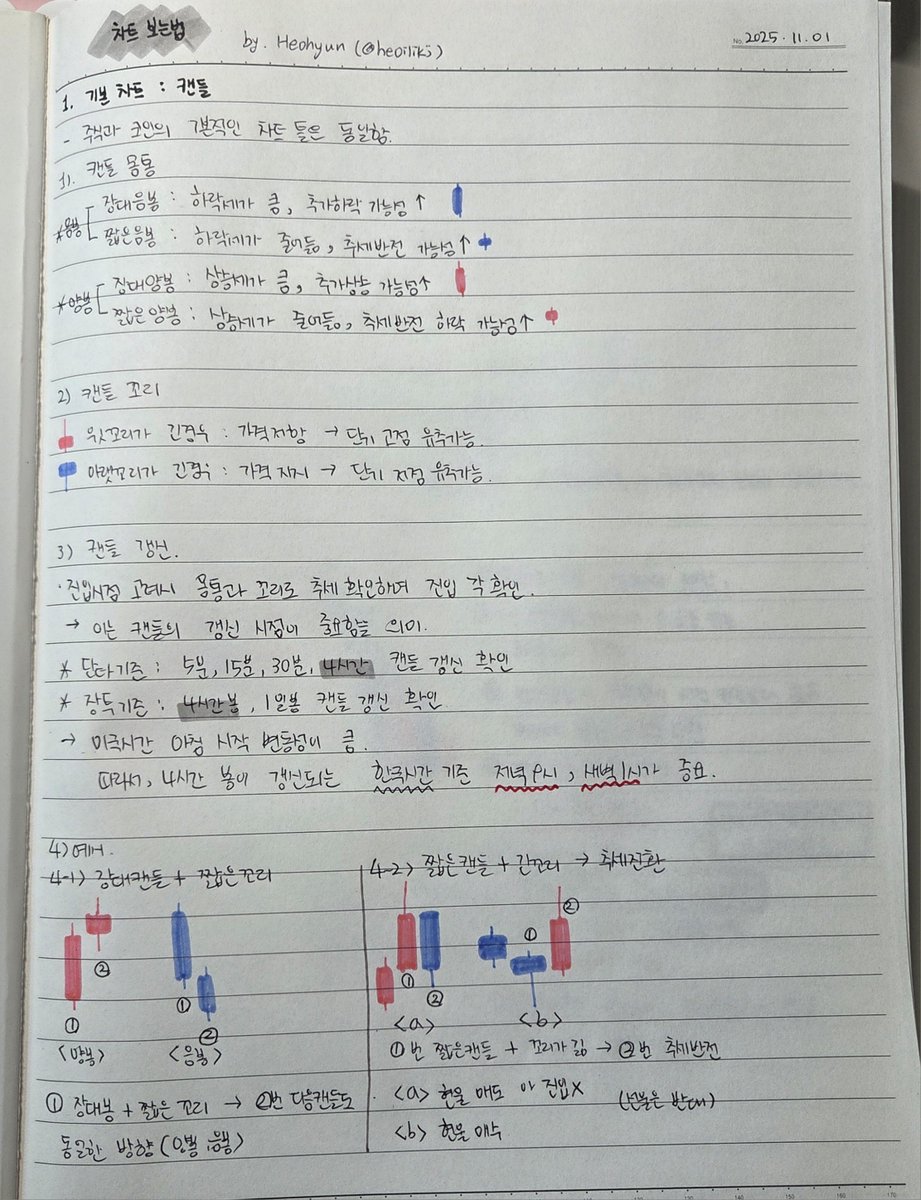 차트 보는법
by. Heohyun (@heoiliki)
No. 2025.11.01
1. 기본 차트 : 캔들
- 주식과 코인의 기본적인 차트 틀은 동일함.
1). 캔들 몸통
*음봉
장대음봉 : 하락세가 큼, 추가하락 가능성↑
짧은음봉 : 하락세가 줄어듦, 추세반전 가능성↑
*양봉
장대양봉 : 상승세가 큼, 추가상승 가능성↑
짧은양봉 : 상승세가 줄어듦, 추세반전 하락 가능성↑
2) 캔들 꼬리
윗꼬리가 긴경우 : 가격저항 → 단위 고점 유추가능.
아랫꼬리가 긴경우 : 가격지지 → 단위 저점 유추가능.
3) 캔들 갱신.
·진입시점 고려시 몸통과 꼬리로 추세 확인하며 진입 각 확인.
→ 이는 캔들의 갱신 시점이 중요함을 의미.
* 단타기준 : 5분, 15분, 30분, 4시간 캔들 갱신 확인
* 장투기준 : 4시간봉, 1일봉 캔들 갱신 확인
→ 미국시간 아침 시작 변동성이 큼.
따라서, 4시간 봉이 갱신되는 한국시간 기준 저녁9시, 새벽1시가 중요.
4) 예시.
4-1) 장대캔들 + 짧은꼬리
① ②
<양봉>
① ②
<음봉>
① 장대봉 + 짧은 꼬리 → ②번 다음캔들도
동일한 방향 (양봉, 음봉)
4-2) 짧은캔들 + 긴꼬리 → 추세전환
① ②
<a>
① ②
<b>
①번 짧은캔들 + 꼬리가 긺 → ②번 추세반전
<a> 현물 매도 or 진입X
(선물은 반대)
<b> 현물 매수